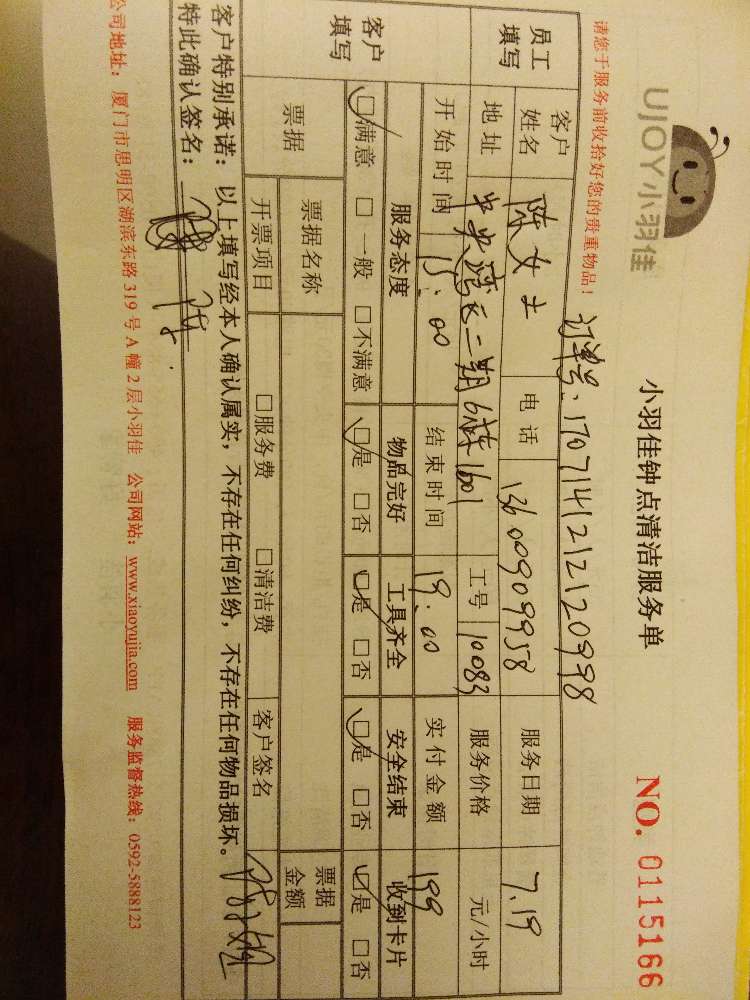 UJOY小羽佳
小羽佳钟点清洁服务单
NO. 0115166
请您于服务前收拾好您的贵重物品！
订单号：1707141212120998
员工填写 客户姓名 陈女士 电话 13600909958 服务日期 7.19
地址 中央湾区二期6栋1601 工号 10083 服务价格 元/小时
开始时间 15:00 结束时间 19:00 实付金额 199
客户填写 服务态度 物品完好 工具齐全 安全结束 收到卡片
☑满意 □一般 □不满意 ☑是 □否 ☑是 □否 ☑是 □否 ☑是 □否
票据 票据名称 票据金额
开票项目 □服务费 □清洁费 客户签名
客户特别承诺：以上填写经本人确认属实，不存在任何纠纷，不存在任何物品损坏。
特此确认签名：
公司地址：厦门市思明区湖滨东路 319 号 A 幢 2 层小羽佳 公司网站：www.xiaoyujia.com 服务监督热线：0592-5888123